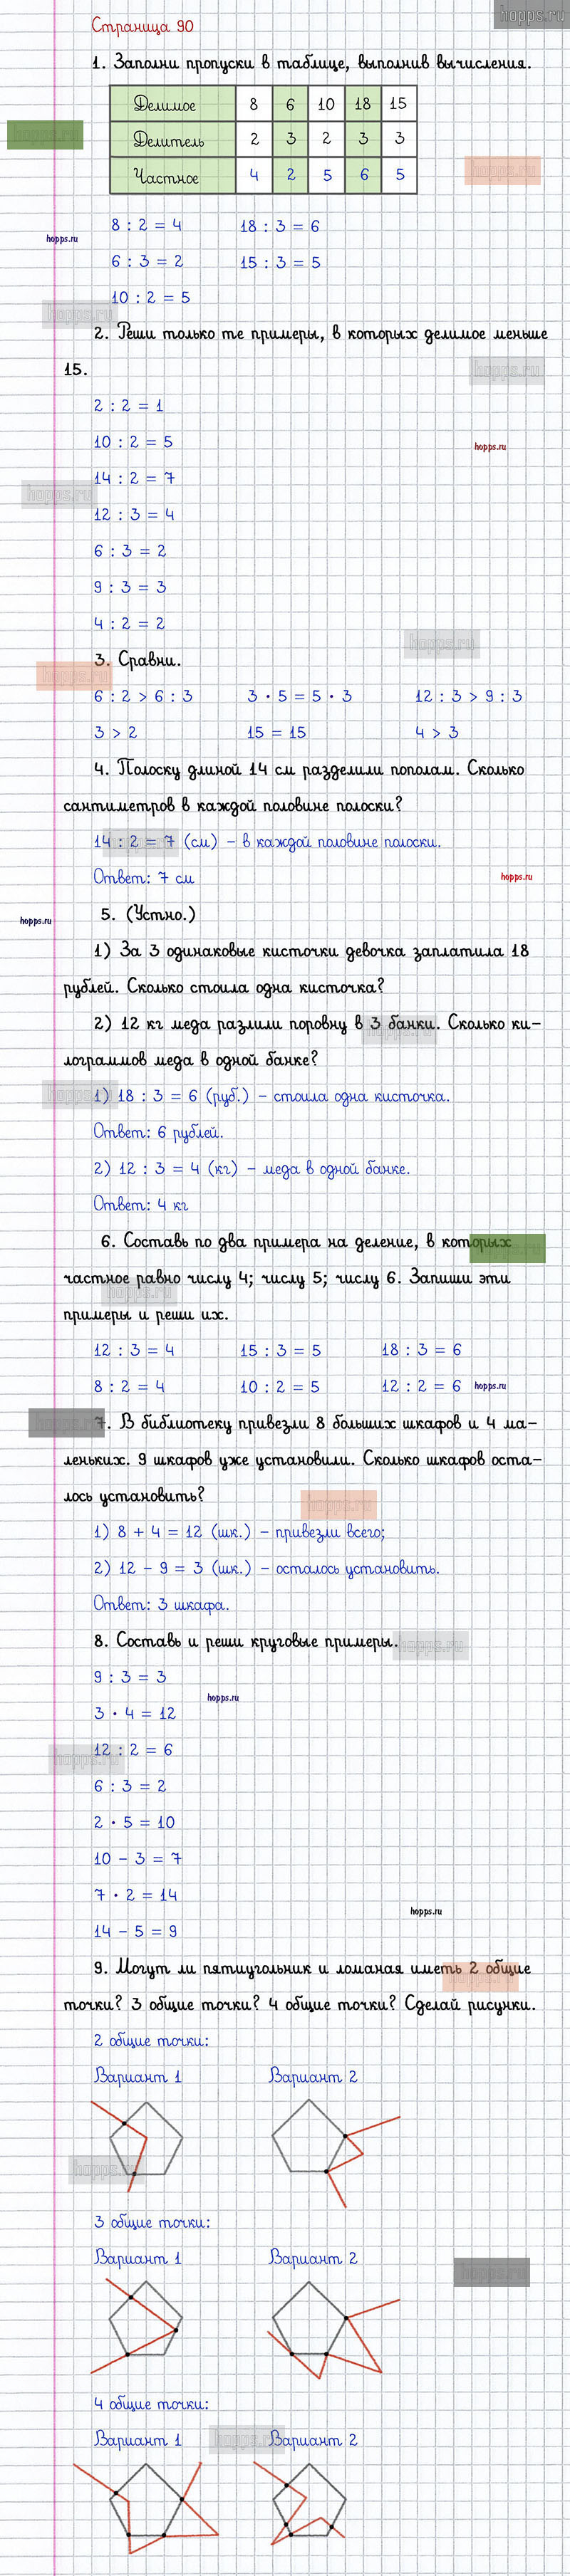 hopps.ru
Страница 90
1. Заполни пропуски в таблице, выполнив вычисления.
Делимое 8 6 10 18 15
hopps.ru
Делитель 2 3 2 3 3
hopps.ru
Частное 4 2 5 6 5
8 : 2 = 4 18 : 3 = 6
hopps.ru
6 : 3 = 2 15 : 3 = 5
10 : 2 = 5
hopps.ru
2. Реши только те примеры, в которых делимое меньше
15.
hopps.ru
2 : 2 = 1
10 : 2 = 5
hopps.ru
14 : 2 = 7
hopps.ru
12 : 3 = 4
6 : 3 = 2
9 : 3 = 3
4 : 2 = 2
hopps.ru
3. Сравни.
hopps.ru
6 : 2 > 6 : 3 3 · 5 = 5 · 3 12 : 3 > 9 : 3
3 > 2 15 = 15 4 > 3
4. Полоску длиной 14 см разделили пополам. Сколько
сантиметров в каждой половине полоски?
14 : 2 = 7 (см) – в каждой половине полоски.
hopps.ru
Ответ: 7 см
hopps.ru
5. (Устно.)
hopps.ru
1) За 3 одинаковые кисточки девочка заплатила 18
рублей. Сколько стоила одна кисточка?
2) 12 кг меда разлили поровну в 3 банки. Сколько ки-
hopps.ru
лограммов меда в одной банке?
hopps.ru
1) 18 : 3 = 6 (руб.) – стоила одна кисточка.
Ответ: 6 рублей.
2) 12 : 3 = 4 (кг) – меда в одной банке.
Ответ: 4 кг
6. Составь по два примера на деление, в которых
hopps.ru
частное равно числу 4; числу 5; числу 6. Запиши эти
hopps.ru
примеры и реши их.
12 : 3 = 4 15 : 3 = 5 18 : 3 = 6
8 : 2 = 4 10 : 2 = 5 12 : 2 = 6
hopps.ru
7. В библиотеку привезли 8 больших шкафов и 4 ма-
hopps.ru
леньких. 9 шкафов уже установили. Сколько шкафов оста-
лось установить?
hopps.ru
1) 8 + 4 = 12 (шк.) – привезли всего;
2) 12 – 9 = 3 (шк.) – осталось установить.
Ответ: 3 шкафа.
8. Составь и реши круговые примеры.
hopps.ru
9 : 3 = 3
hopps.ru
3 · 4 = 12
12 : 2 = 6
hopps.ru
6 : 3 = 2
2 · 5 = 10
10 – 3 = 7
7 · 2 = 14
hopps.ru
14 – 5 = 9
9. Могут ли пятиугольник и ломаная иметь 2 общие
hopps.ru
точки? 3 общие точки? 4 общие точки? Сделай рисунки.
2 общие точки:
Вариант 1 Вариант 2
hopps.ru
3 общие точки:
Вариант 1 Вариант 2
hopps.ru
4 общие точки:
Вариант 1 Вариант 2
hopps.ru